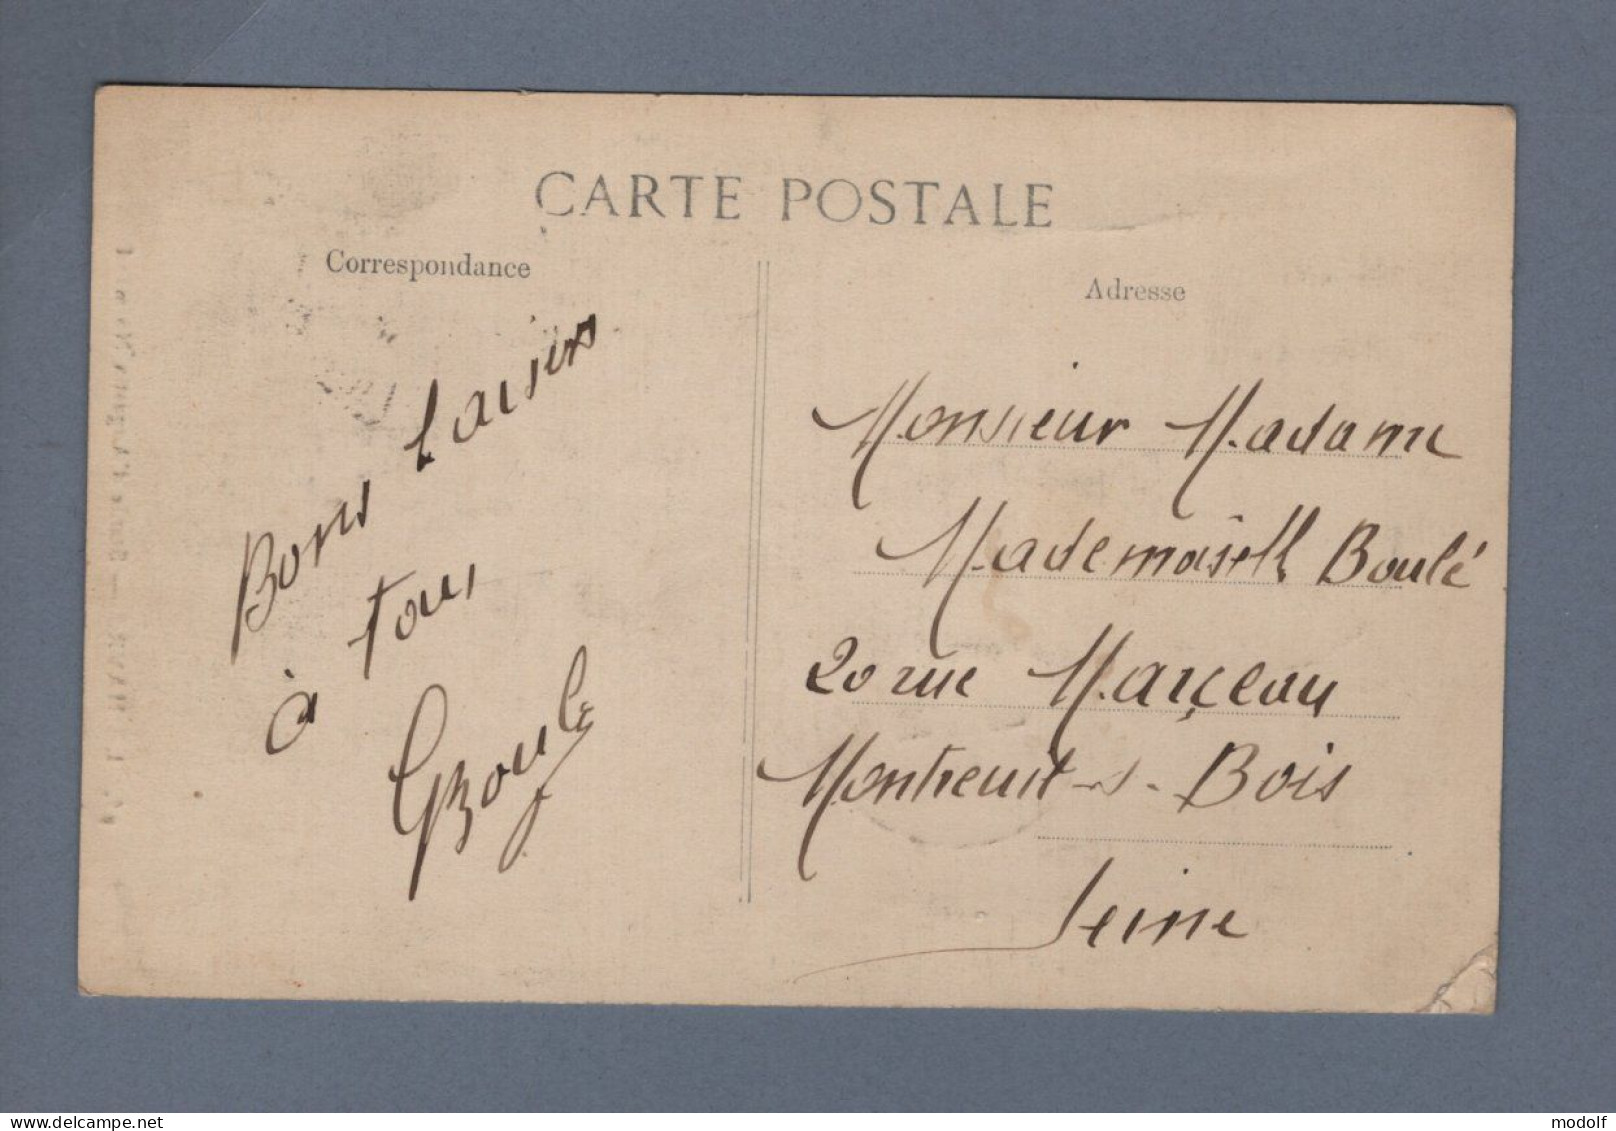 CARTE POSTALE
Correspondance
Adresse
Bons baisers
à tous
GBoulé
Monsieur Madame
Mademoiselle Boulé
20 rue Marçeau
Montreuil-s-Bois
Seine
modolf